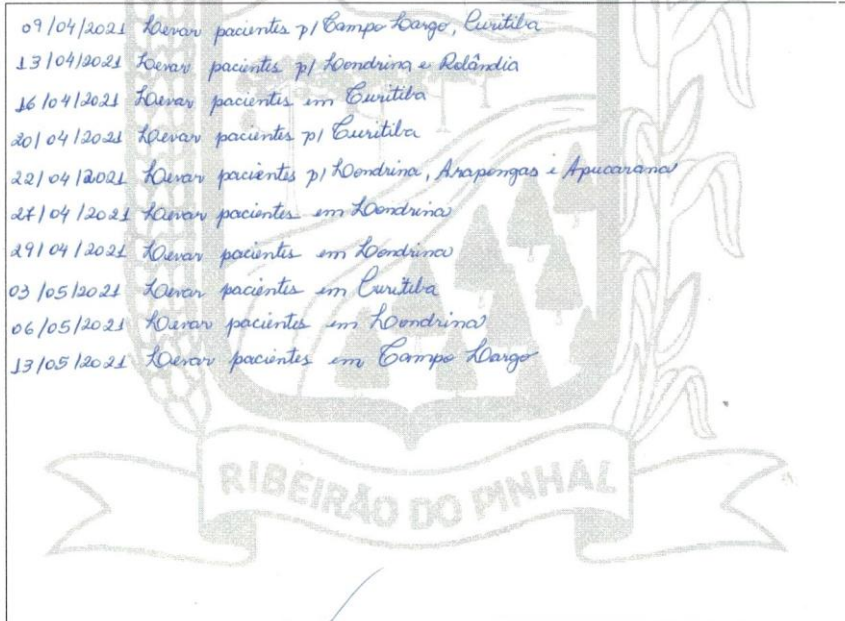 09/04/2021 Levar pacientes p/ Campo Largo, Curitiba
13/04/2021 Levar pacientes p/ Londrina e Rolândia
16/04/2021 Levar pacientes em Curitiba
20/04/2021 Levar pacientes p/ Curitiba
22/04/2021 Levar pacientes p/ Londrina, Arapongas e Apucarana
27/04/2021 Levar pacientes em Londrina
29/04/2021 Levar pacientes em Londrina
03/05/2021 Levar pacientes em Curitiba
06/05/2021 Levar pacientes em Londrina
13/05/2021 Levar pacientes em Campo Largo
RIBEIRÃO DO PINHAL